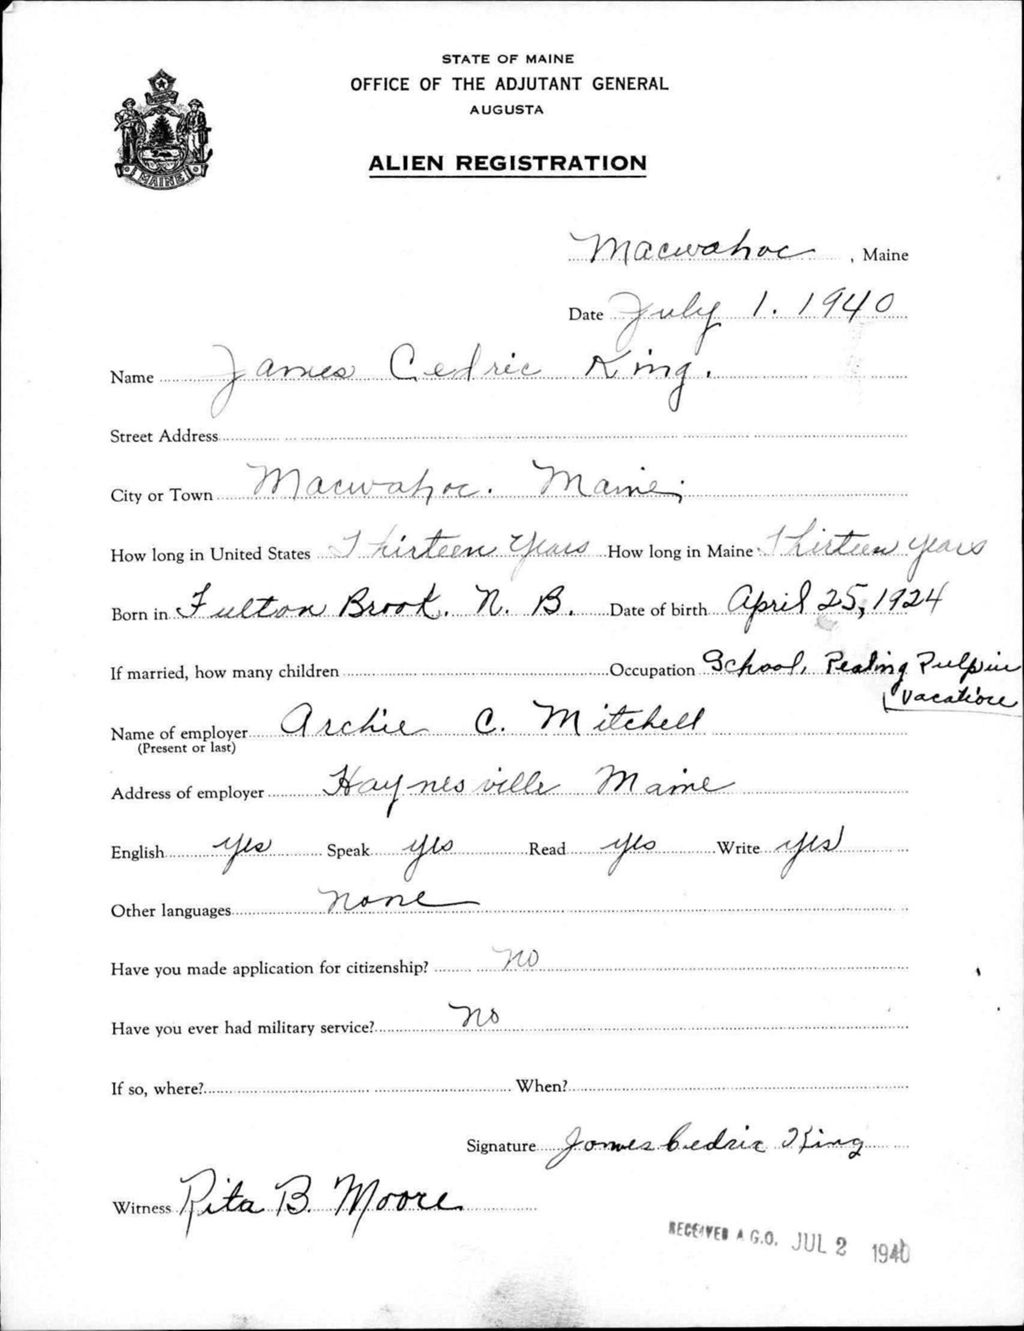 STATE OF MAINE
OFFICE OF THE ADJUTANT GENERAL
AUGUSTA
ALIEN REGISTRATION
MAINE
Macwahoc, Maine
Date July 1. 1940
Name James Cedric King.
Street Address
City or Town Macwahoc. Maine.
How long in United States Thirteen Years How long in Maine Thirteen years
Born in Fulton Brook. N. B. Date of birth April 25, 1924
If married, how many children Occupation School, Pealing Pulp in
Vacation
Name of employer Archie C. Mitchell
(Present or last)
Address of employer Haynesville Maine
English yes Speak yes Read yes Write yes
Other languages none
Have you made application for citizenship? no
Have you ever had military service? no
If so, where? When?
Signature James Cedric King
Witness Rita B. Moore
RECEIVED A.G.O. JUL 2 1940